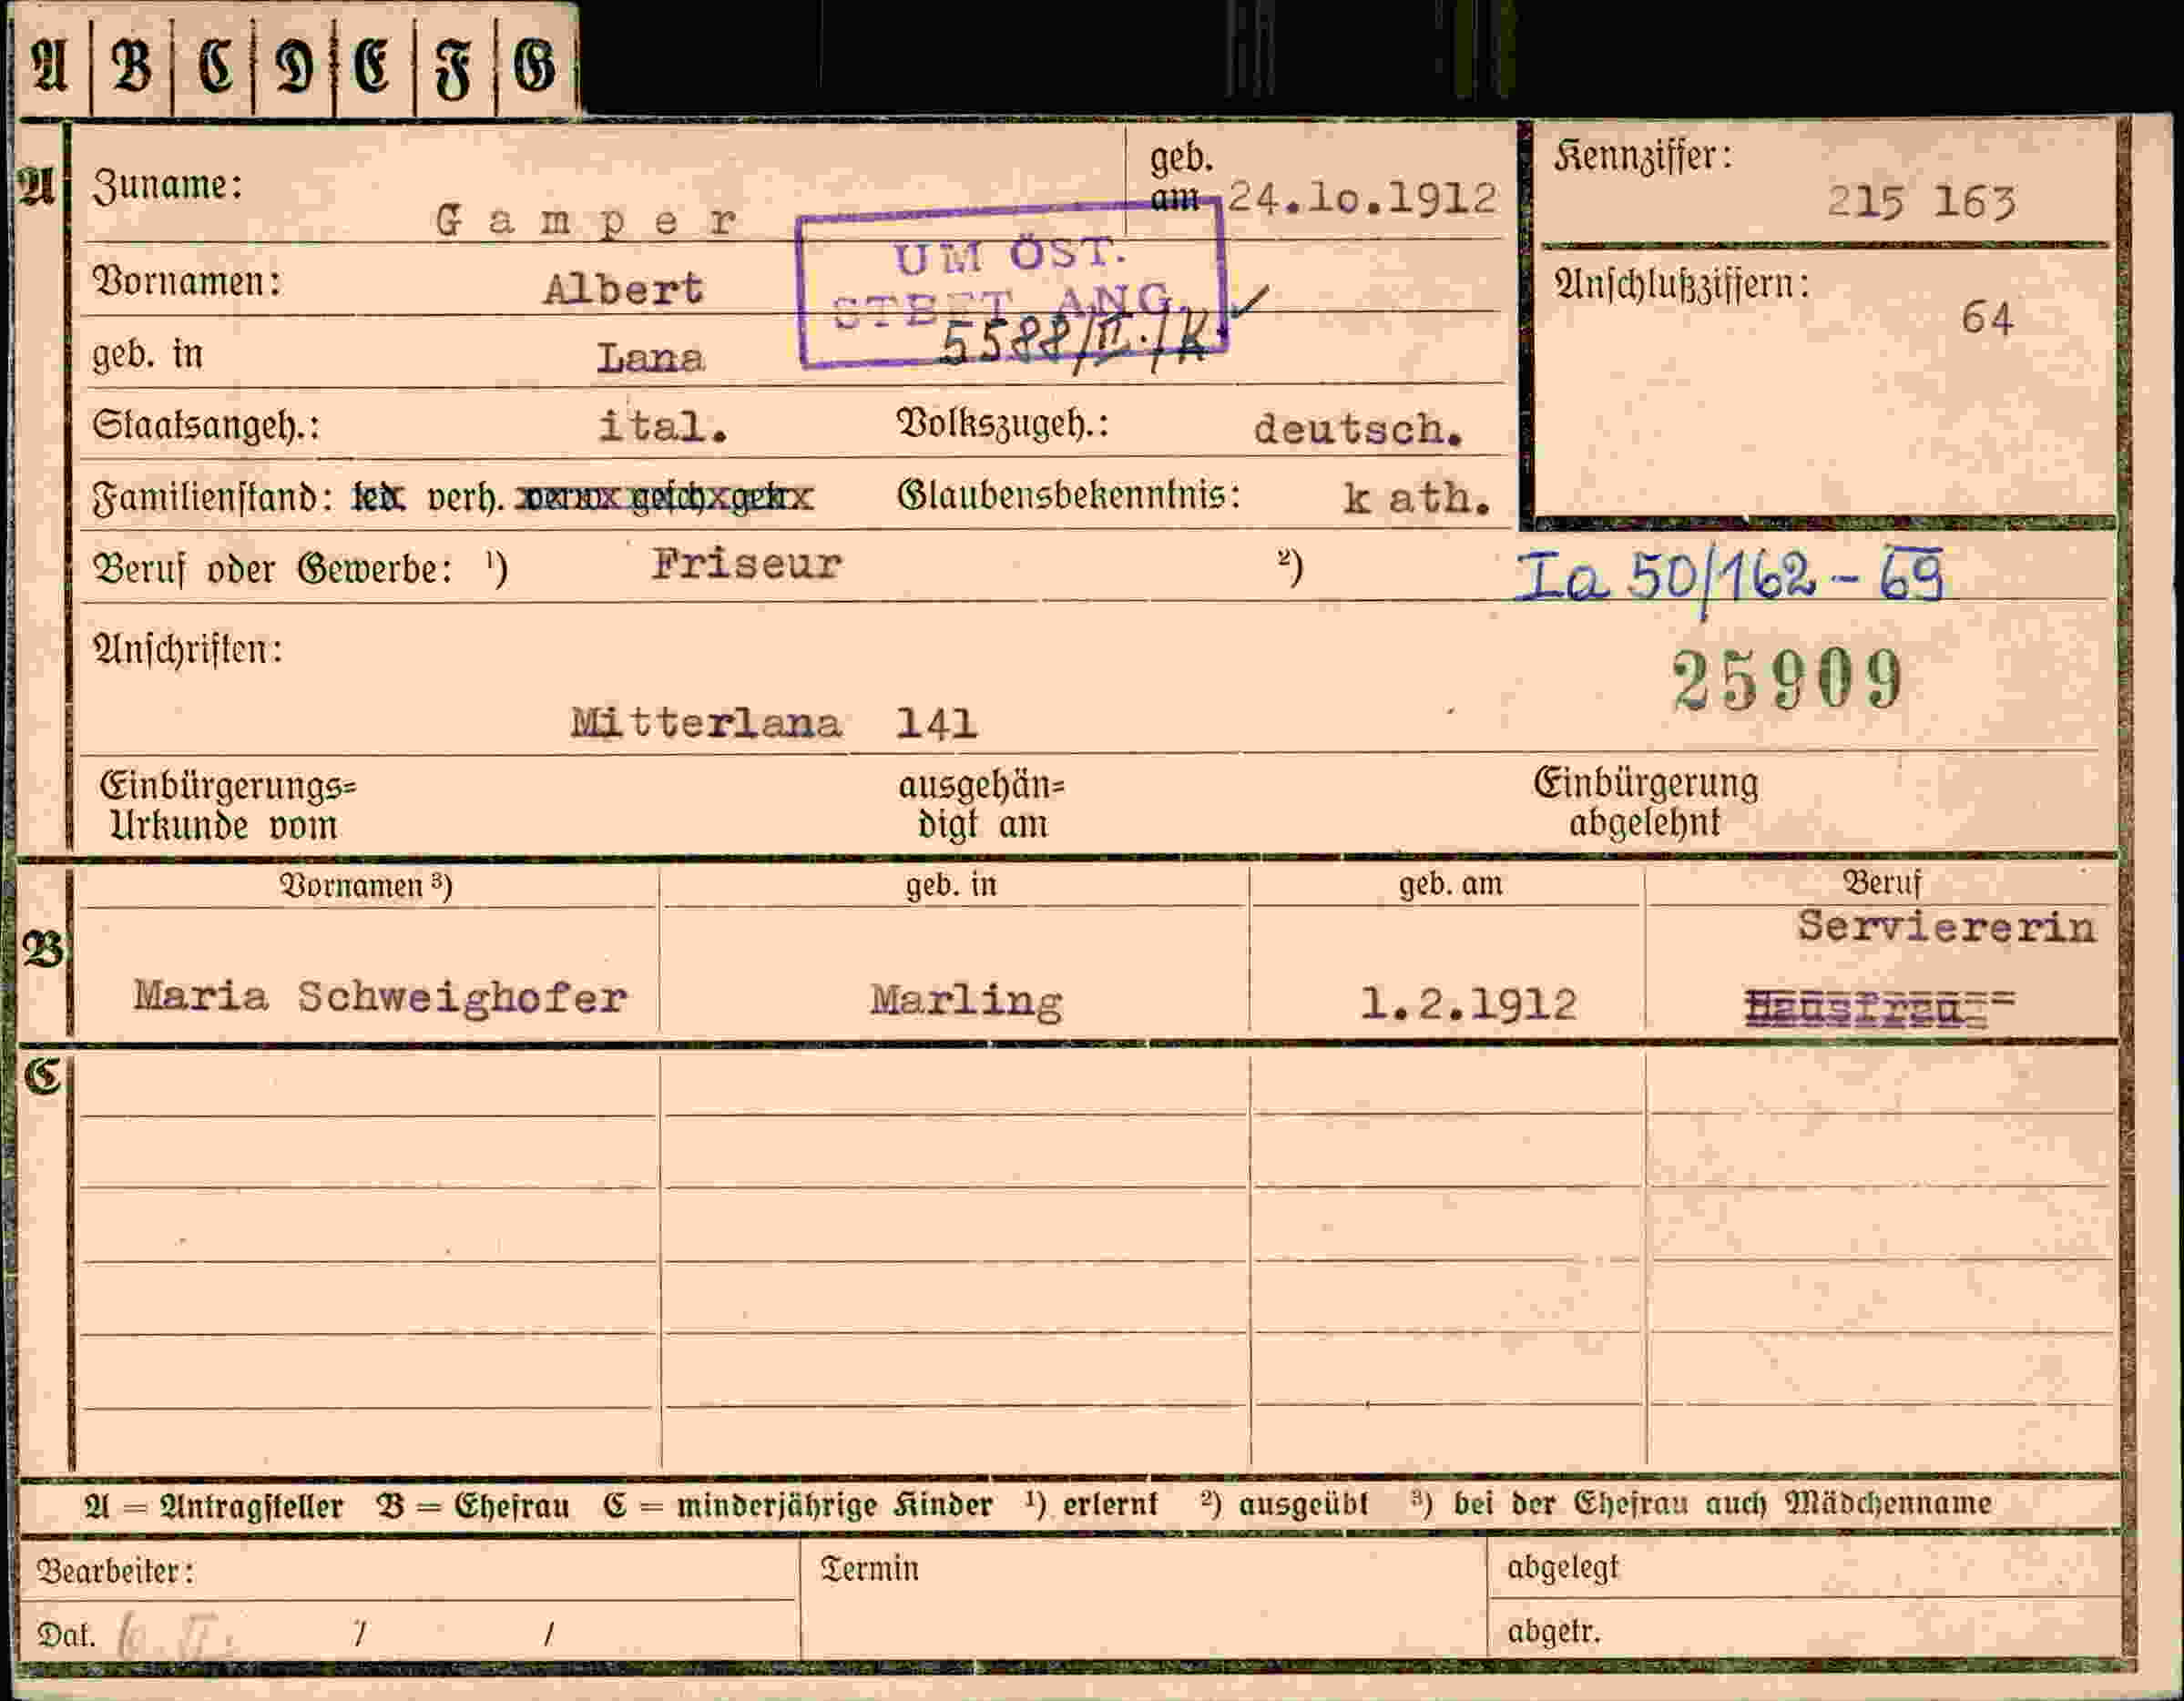 A B C D E F G
A
Zuname: Gamper
geb. am 24.10.1912
Kennziffer: 215 163
UM ÖST.
STBET ANG.
5588/II./K ✓
Vornamen: Albert
Anschlußziffern: 64
geb. in Lana
Staatsangeh.: ital. Volkszugeh.: deutsch.
Familienstand: led. verh. verw. gesch. getr. Glaubensbekenntnis: kath.
Beruf oder Gewerbe: ¹) Friseur ²)
Ia 50/162-69
Anschriften:
25909
Mitterlana 141
Einbürgerungs=
Urkunde vom
ausgehän=
digt am
Einbürgerung
abgelehnt
B
Vornamen ³) geb. in geb. am Beruf
Serviererin
Maria Schweighofer Marling 1.2.1912 Hausfrau
C
A = Antragsteller B = Ehefrau C = minderjährige Kinder ¹) erlernt ²) ausgeübt ³) bei der Ehefrau auch Mädchenname
Bearbeiter: Termin abgelegt
Dat. / / abgetr.